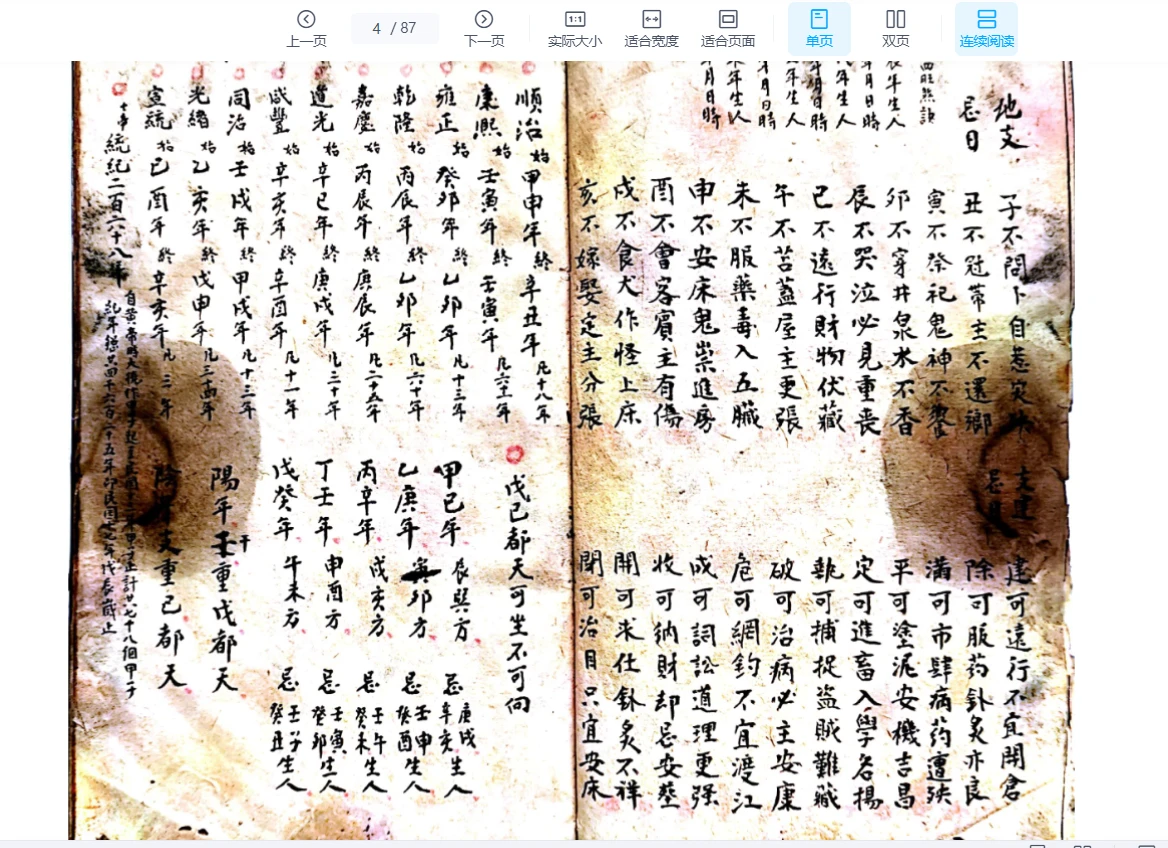 上一页
4 /87
下一页
实际大小
适合宽度
适合页面
单页
双页
连续阅读
地支
忌日
子不問卜自惹災殃
丑不冠帶主不還鄉
寅不祭祀鬼神不嘗
卯不穿井泉水不香
辰不哭泣必見重喪
巳不遠行財物伏藏
午不苫蓋屋主更張
未不服藥毒入五臟
申不安床鬼祟進房
酉不會客賓主有傷
戌不食犬作怪上床
亥不嫁娶定主分張
支建
忌日
建可遠行不宜開倉
除可服药針炙亦良
滿可市肆病药遭殃
平可塗泥安機吉昌
定可進畜入學名揚
執可捕捉盜賊難藏
破可治病必主安康
危可網釣不宜渡江
成可詞訟道理更强
收可納財却忌安葬
開可求仕針炙不祥
閉可治目只宜安床
順治始甲申年終辛丑年凡十八年
康熙始壬寅年終壬寅年凡六十一年
雍正始癸卯年終乙卯年凡十三年
乾隆始丙辰年終乙卯年凡六十年
嘉慶始丙辰年終庚辰年凡二十五年
道光始辛巳年終庚戌年凡三十年
咸豐始辛亥年終辛酉年凡十一年
同治始壬戌年終甲戌年凡十三年
光緒始乙亥年終戊申年凡三十四年
宣統始己酉年終辛亥年凡三年
十帝統紀二百六十八年
戊己都天可坐不可向
甲己年辰巽方忌庚戌辛亥生人
乙庚年寅卯方忌壬申癸酉生人
丙辛年戌亥方忌壬午癸未生人
丁壬年申酉方忌壬寅癸卯生人
戊癸年午未方忌壬子癸丑生人
陽年干壬重戊都天
支重己都天